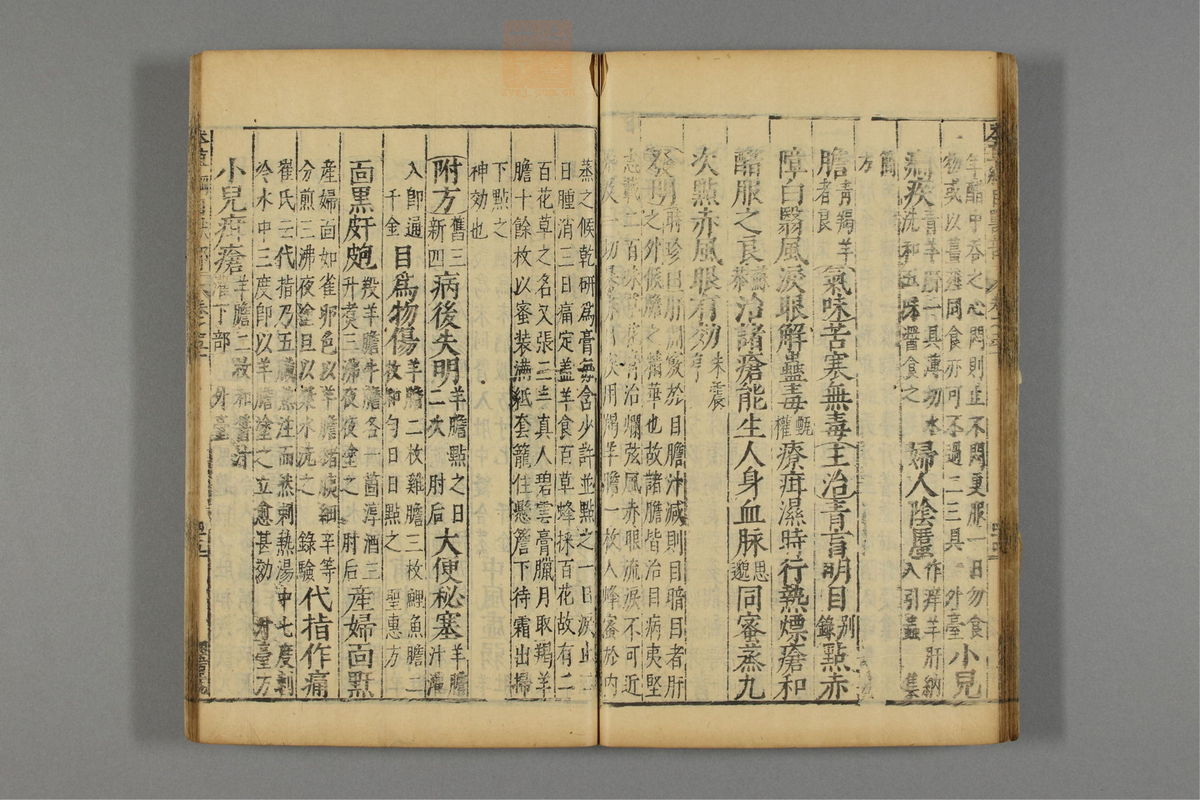 生醋中吞之心悶則止不悶更服一日勿食
物或以薑虀同食亦可不過二三具外臺小兒
癇疾青羊肝一具薄切水洗和五味醬食之婦人陰䘌作痒羊肝納入引蟲集
簡方
膽青羯羊者良氣味苦寒無毒主治青盲明目别錄點赤
障白翳風淚眼解蠱毒甄權療疳濕時行熱熛瘡和
醋服之良治諸瘡能生人身血脉思邈同蜜蒸九
次點赤風眼有效朱震亨
發明時珍曰肝開竅於目膽汁減則目暗目者肝
之外候膽之精華也故諸膽皆治目病夷堅
志載二百味花草膏治爛弦風赤眼流淚不可近
用羯羊膽一枚入蜂蜜於內
蒸之候乾研爲膏每含少許並點之一日淚止二
日腫消三日痛定蓋羊食百草蜂採百花故有二
百花草之名又張三丰真人碧雲膏臘月取羯羊
膽十餘枚以蜜裝滿紙套籠住懸簷下待霜出掃
下點之
神效也
附方舊三新四病後失明羊膽點之日二次肘后大便秘塞羊膽汁灌
入即通千金目爲物傷羊膽二枚雞膽三枚鯉魚膽二枚和勻日日點之聖惠方
面黑皯皰羖羊膽牛膽各一箇淳酒三升煮三沸夜夜塗之肘后產婦面䵟
產婦面如雀卵色以羊膽豬胰細辛等
分煎三沸夜塗旦以漿水洗之錄驗代指作痛
崔氏云代指乃五臟熱注而然刺熱湯中七度刺
冷水中三度即以羊膽塗之立愈甚効外臺方
小兒疳瘡羊膽二枚和醬汁灌下部外臺